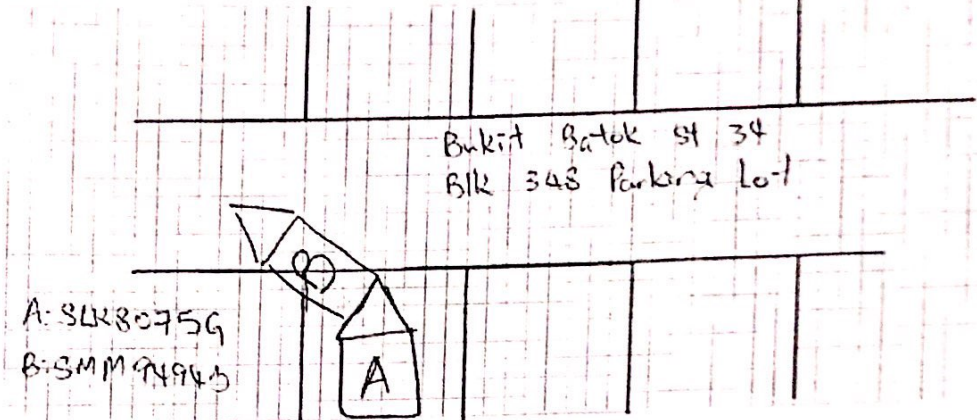 Bukit Batok St 34
Blk 348 Parking Lot
B
A: SLK8075G
B: SMM9494J
A